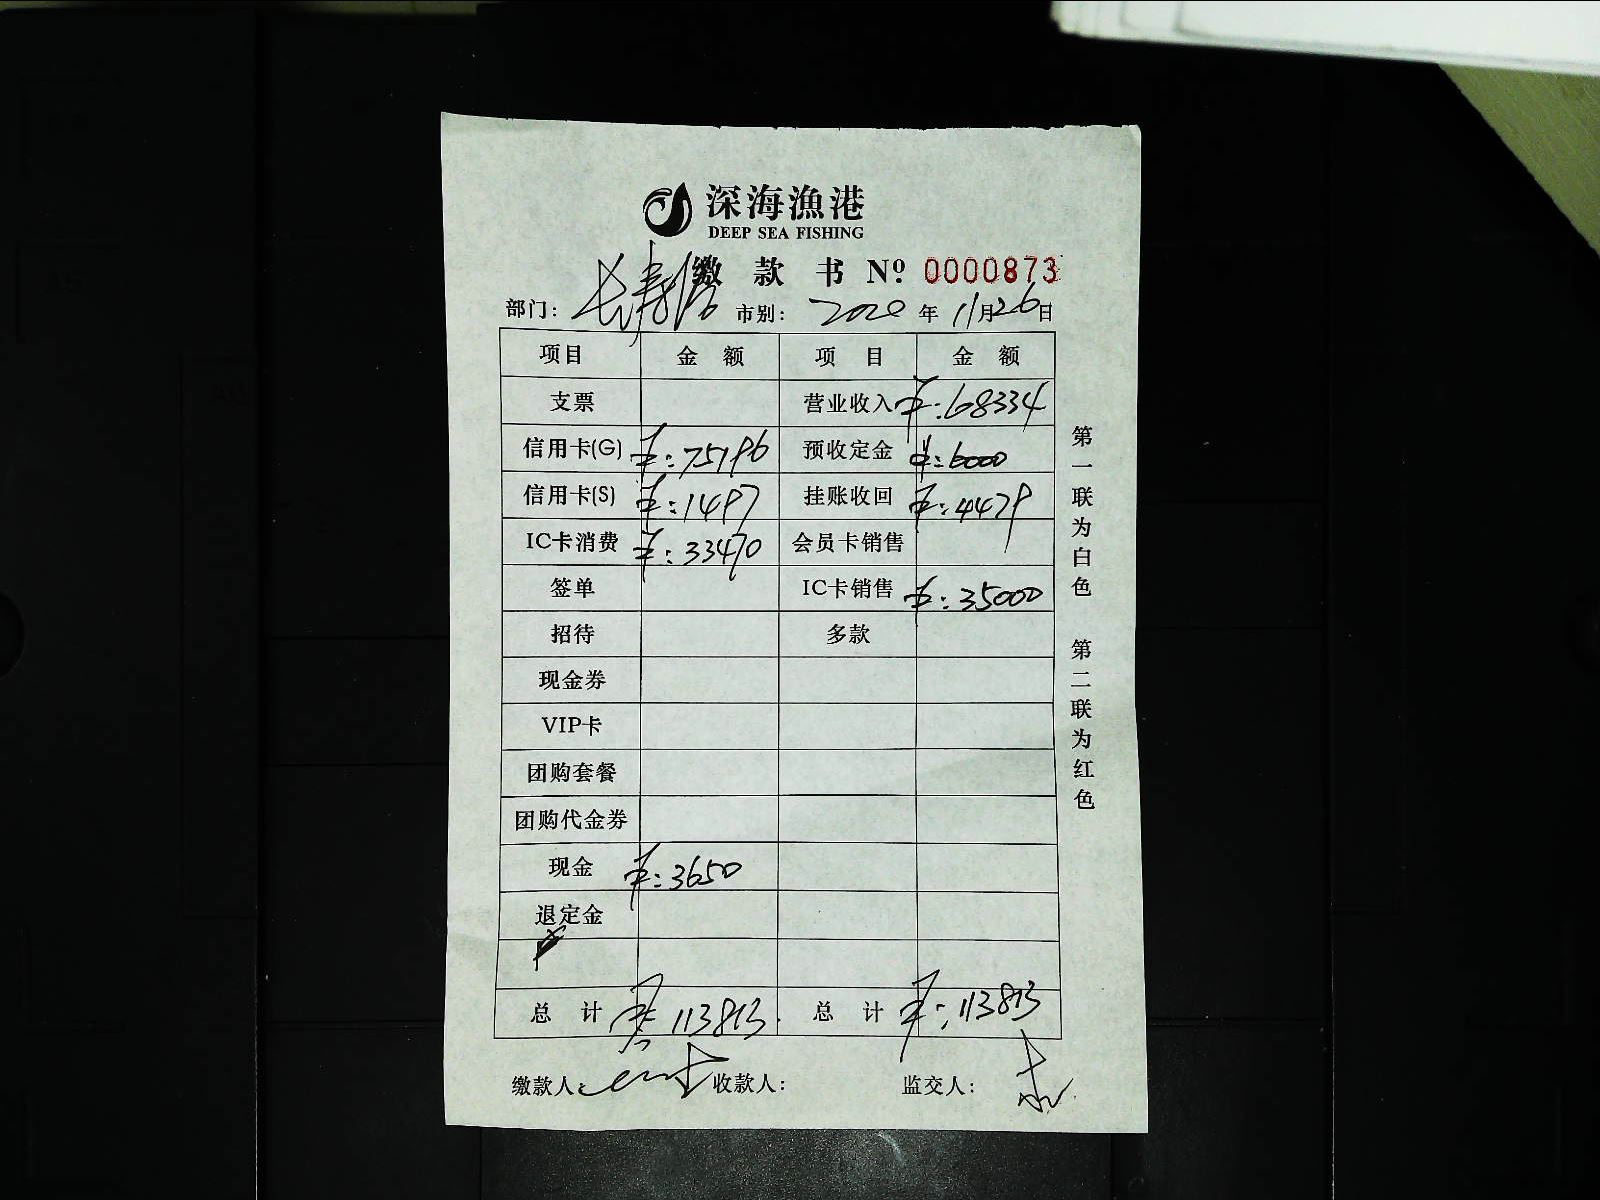 深海漁港
DEEP SEA FISHING
缴 款 书 Nº 0000873
部门: 长寿 市别: 2020 年 11 月 26 日
项目 金 额 项 目 金 额
支票 营业收入 ¥:68334
信用卡(G) ¥:75196 预收定金 ¥:6000
信用卡(S) ¥:1497 挂账收回 ¥:4479
IC卡消费 ¥:33470 会员卡销售
签单 IC卡销售 ¥:35000
招待 多款
现金券
VIP卡
团购套餐
团购代金券
现金 ¥:3650
退定金
总 计 ¥:113813. 总 计 ¥:113813
缴款人: 收款人: 监交人:
第一联为白色 第二联为红色